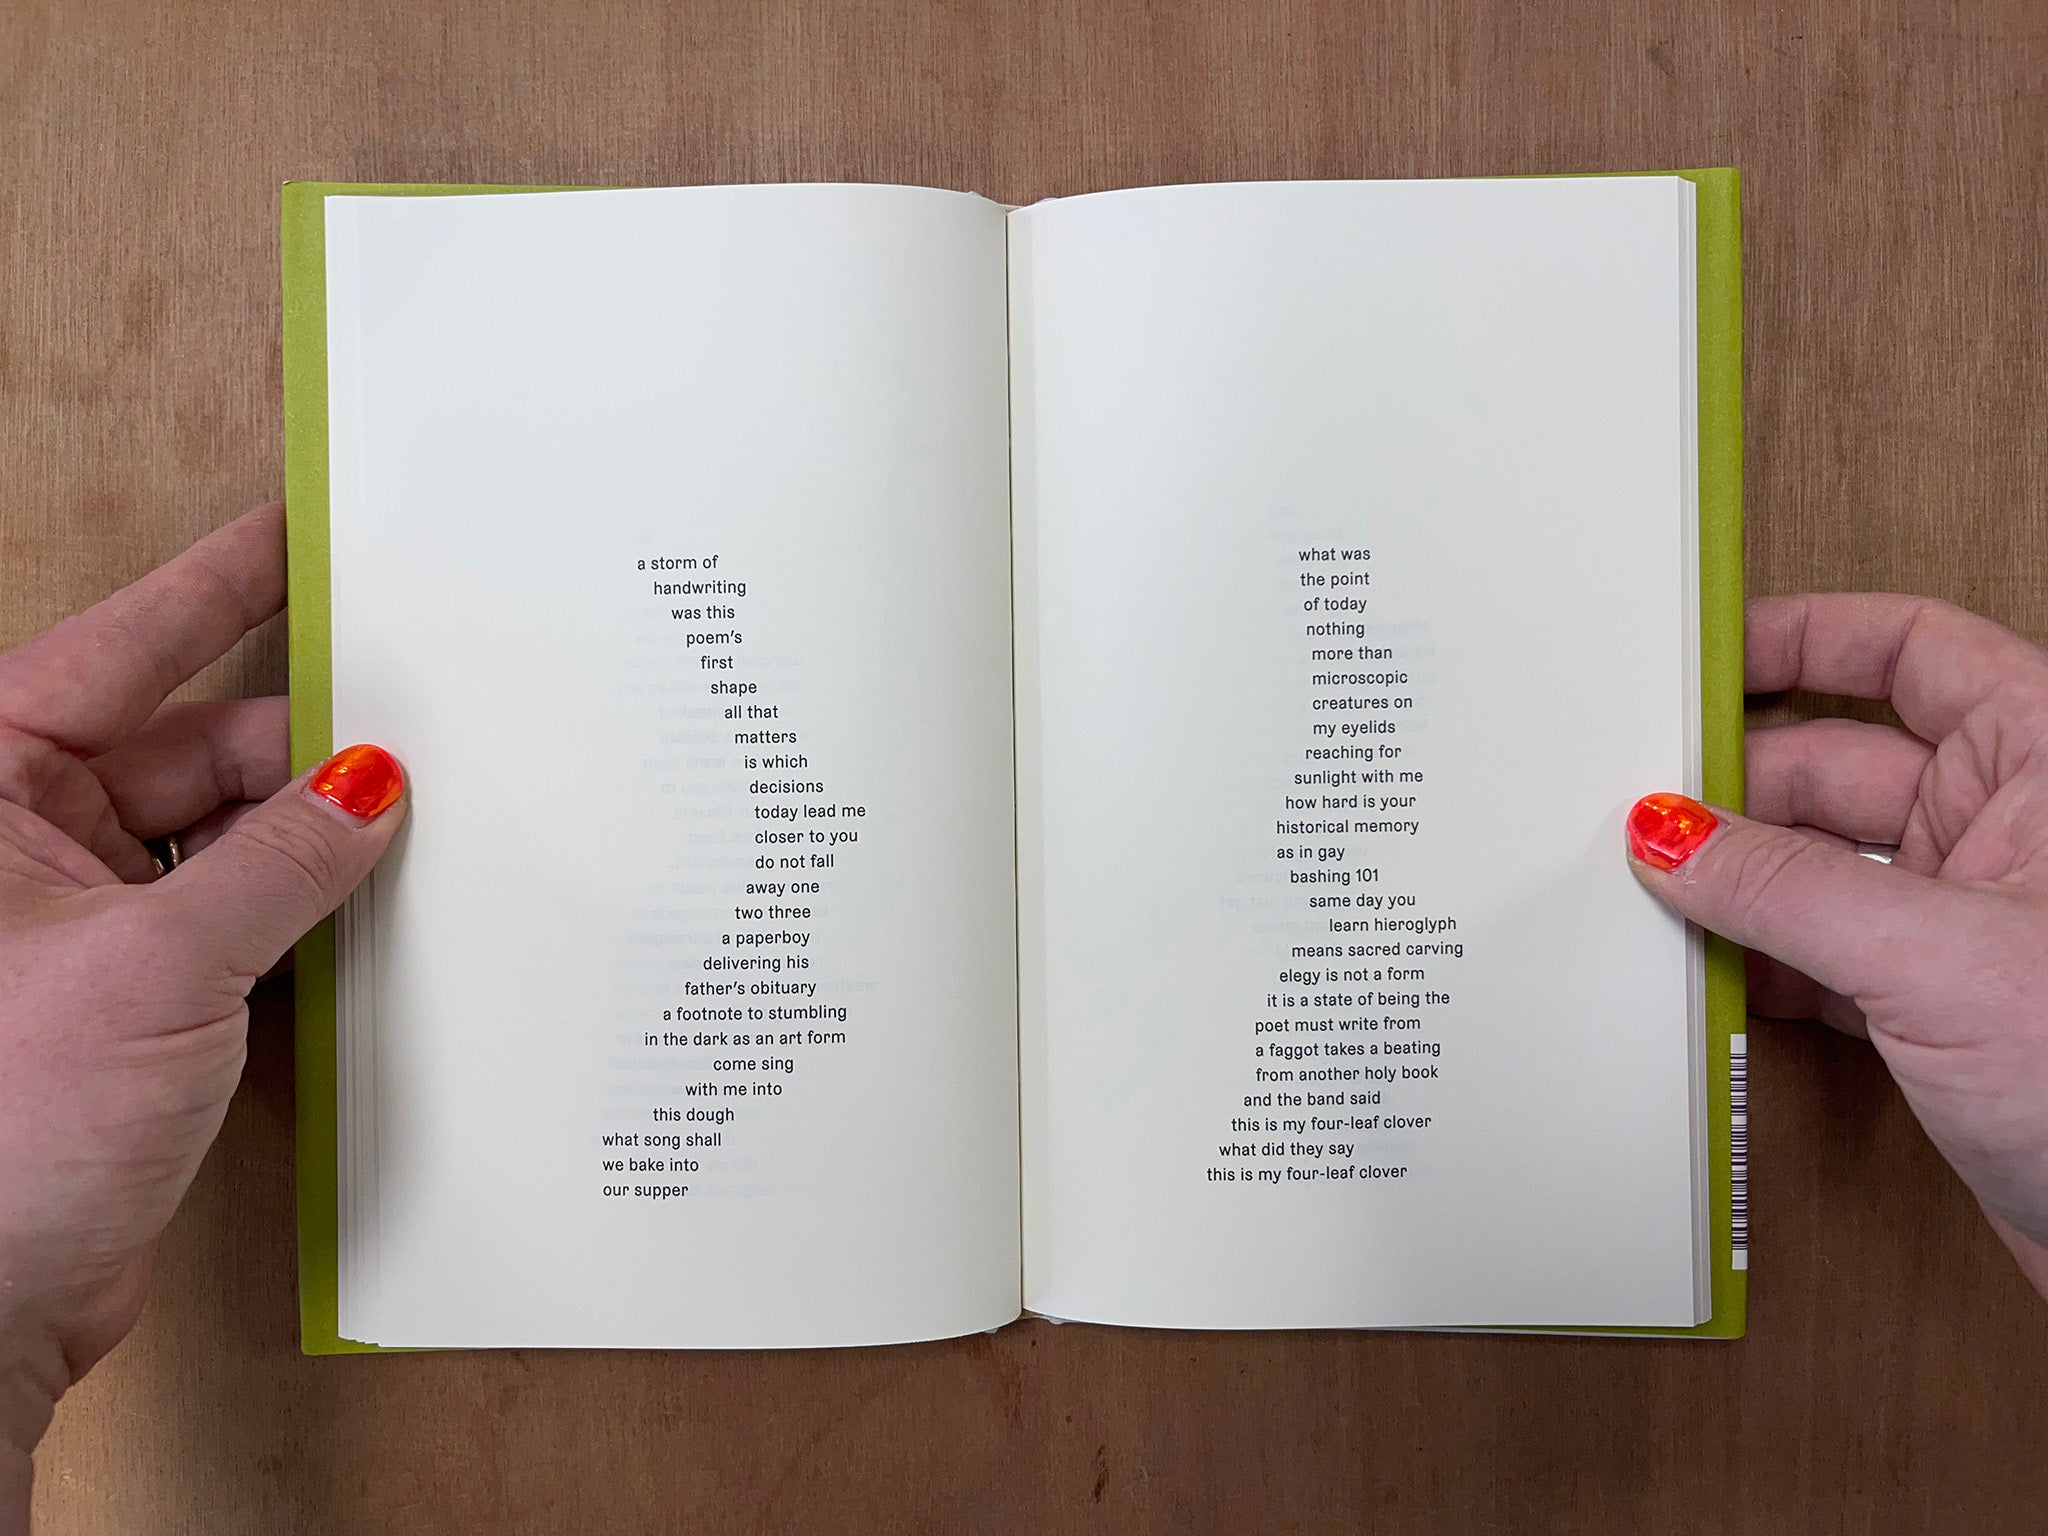 a storm of
handwriting
was this
poem's
first
shape
all that
matters
is which
decisions
today lead me
closer to you
do not fall
away one
two three
a paperboy
delivering his
father's obituary
a footnote to stumbling
in the dark as an art form
come sing
with me into
this dough
what song shall
we bake into
our supper
what was
the point
of today
nothing
more than
microscopic
creatures on
my eyelids
reaching for
sunlight with me
how hard is your
historical memory
as in gay
bashing 101
same day you
learn hieroglyph
means sacred carving
elegy is not a form
it is a state of being the
poet must write from
a faggot takes a beating
from another holy book
and the band said
this is my four-leaf clover
what did they say
this is my four-leaf clover